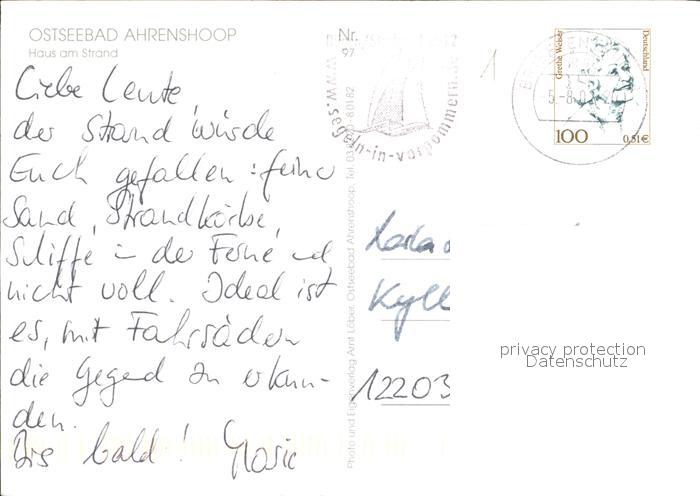 OSTSEEBAD AHRENSHOOP
Haus am Strand
Liebe Leute,
der Strand würde
Euch gefallen: feiner
Sand, Strandkörbe,
Schiffe in der Ferne und
nicht voll. Ideal ist
es, mit Fahrrädern
die Gegend zu erkun-
den.
Bis bald!
Nr.
97
www.segeln-in-vorpommern.de
Photo und Eigenverlag Arnt Löber, Ostseebad Ahrenshoop, Tel.
Grethe Weiser
Deutschland
100
0,51€
5.-8.0
Kyll
12203
privacy protection
Datenschutz